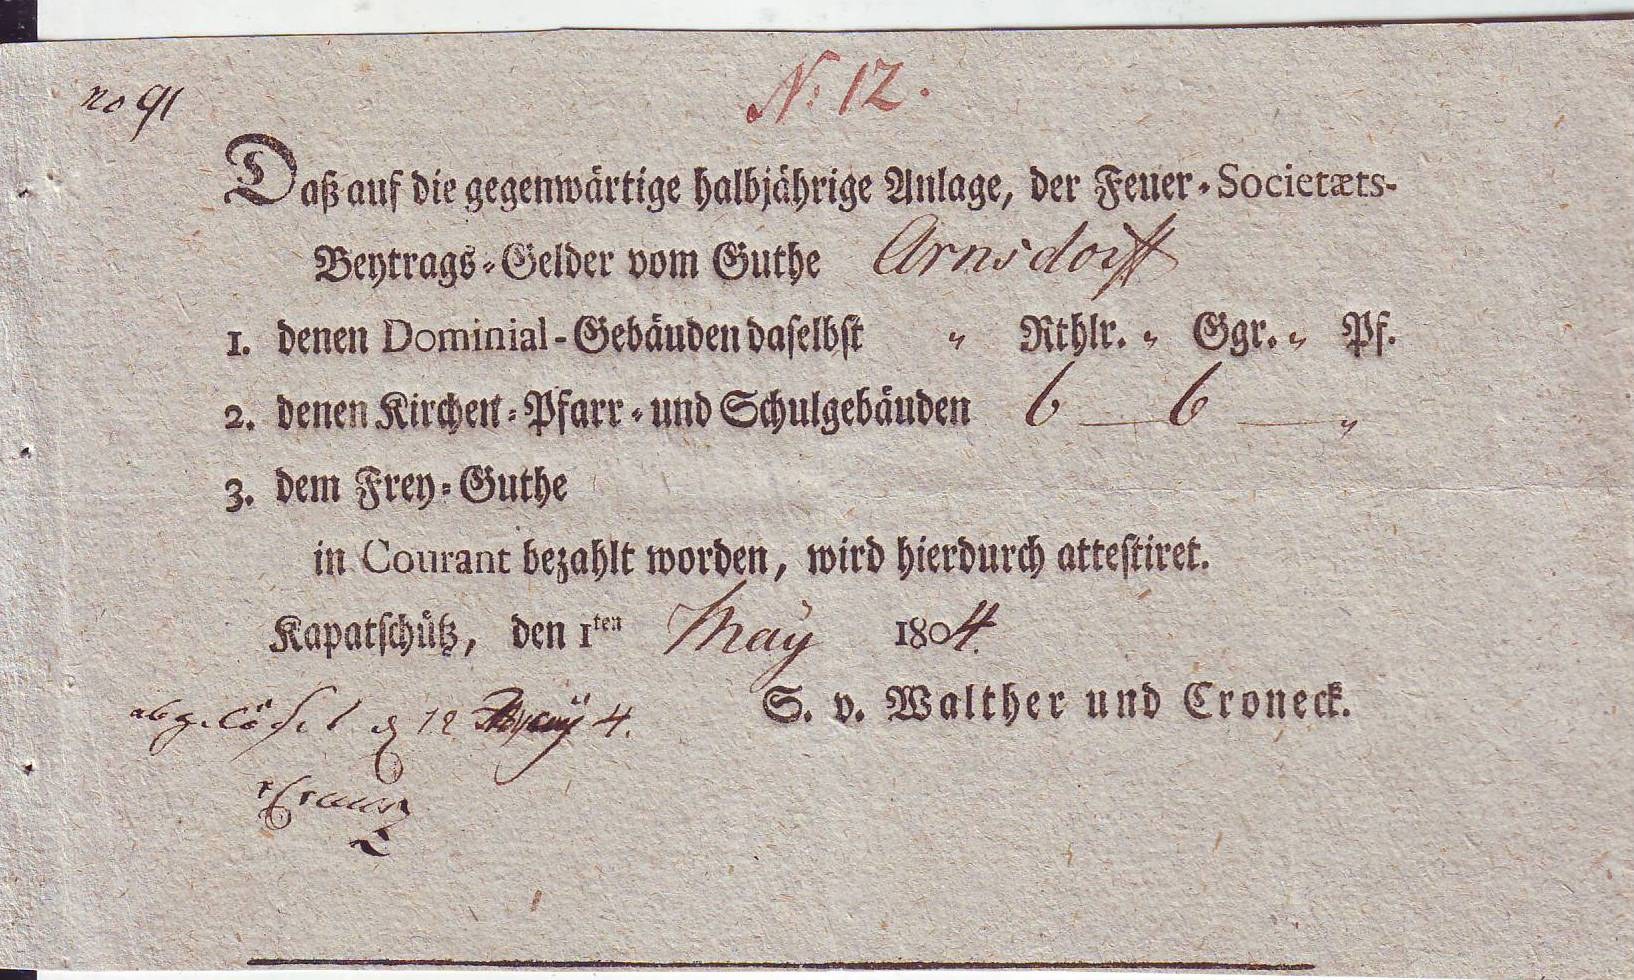 no 91
N: 12.
Daß auf die gegenwärtige halbjährige Anlage, der Feuer-Societæts-
Beytrags-Gelder vom Guthe Arnsdorff
1. denen Dominial-Gebäuden daselbst " Rthlr. " Ggr. " Pf.
2. denen Kirchen-Pfarr-und Schulgebäuden 6 — 6 — "
3. dem Frey-Guthe
in Courant bezahlt worden, wird hierdurch attestiret.
Kapatschütz, den 1ten May 1804.
S. v. Walther und Croneck.
abgelöset 12 May 4.